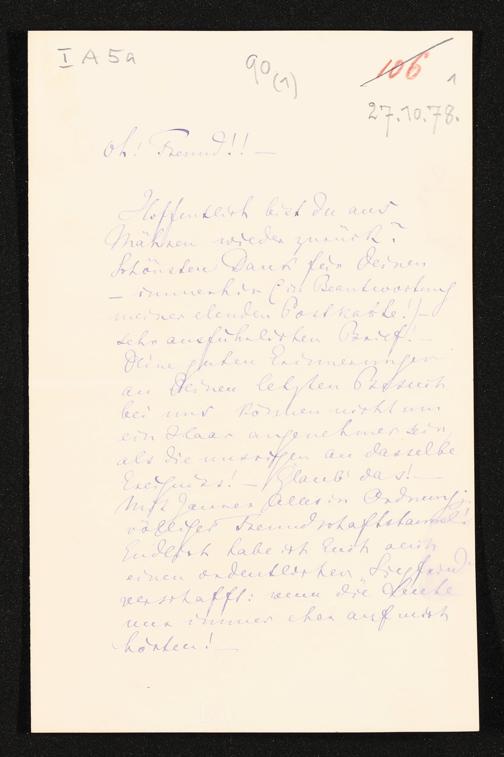 I A 5a
90
(1)
106
1
27.10.78.
Oh! Freund!! —
Hoffentlich bist Du aus
Mähren wieder zurück?
Schönsten Dank für Deinen
– immerhin (in Beantwortung
meiner elenden Postkarte!) –
sehr ausführlichen Brief! –
Deine guten Erinnerungen
an Deinen letzten Besuch
bei uns können nicht um
ein Haar angenehmer sein,
als die unsrigen an dasselbe
Ereigniss! – Glaub' das! –
Mit Jauner Alles in Ordnung;
völliger Freundschaftstaumel!
Endlich habe ich Euch auch
einen ordentlichen „Siegfried"
verschafft: wenn die Leute
nur immer eher auf mich
hörten! —